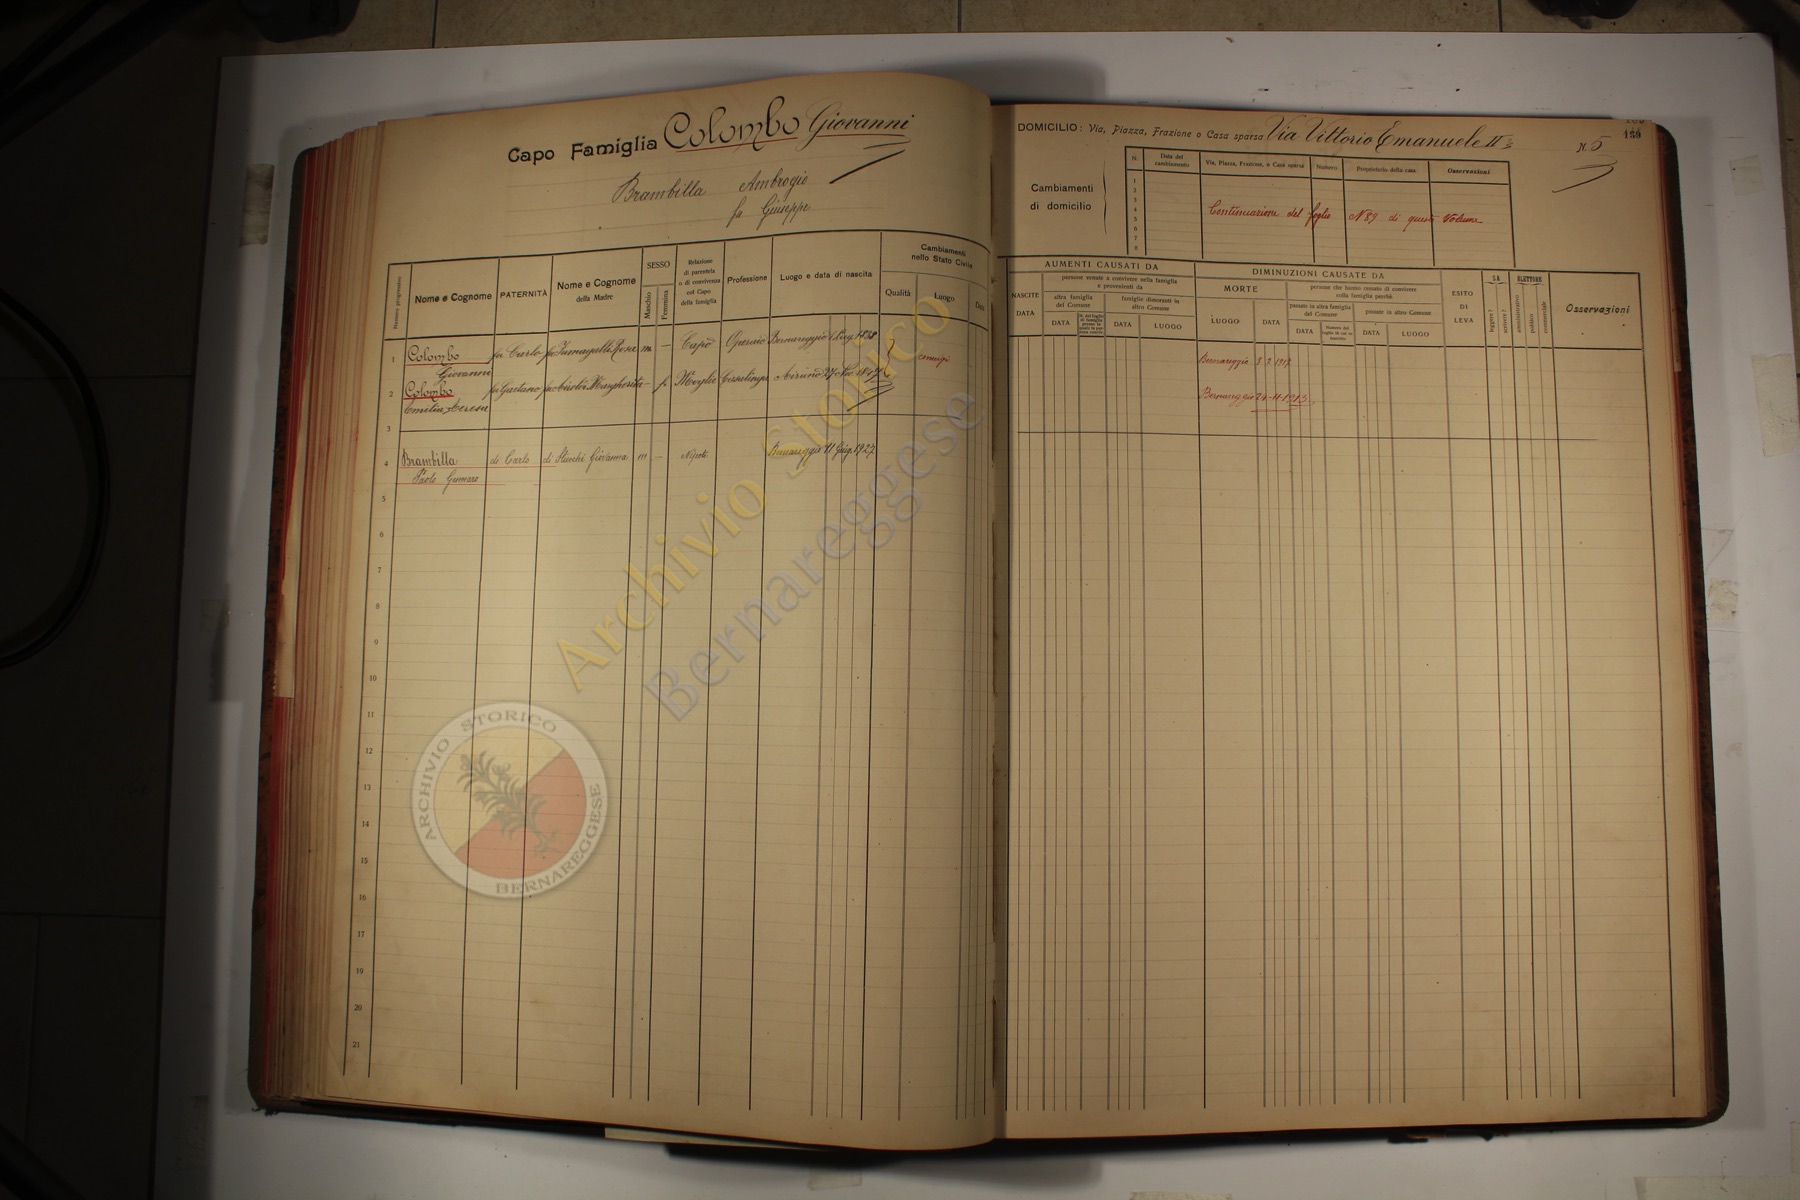 Capo Famiglia Colombo Giovanni
Brambilla Ambrogio
fu Giuseppe
Numero progressivo
Nome e Cognome
PATERNITÀ
Nome e Cognome
della Madre
SESSO
Maschio
Femmina
Relazione
di parentela
o di convivenza
col Capo
della famiglia
Professione
Luogo e data di nascita
Cambiamenti
nello Stato Civile
Qualità
Luogo
Data
1 Colombo fu Carlo fu Fumagalli Rosa m — Capo Operaio Bernareggio 1838 coniugi
Giovanni
2 Colombo fu Gaetano fu Margherita — f Moglie Casalinga
Emilia Teresa
3
4 Brambilla di Carlo di Stucchi Giovanna m — Nipote Bernareggio 11 Giug. 1927
Paolo
5
6
7
8
9
10
11
12
13
14
15
16
17
18
19
20
21
DOMICILIO: Via, Piazza, Frazione o Casa sparsa Via Vittorio Emanuele II N. 5
139
Cambiamenti
di domicilio
N.
Data del
cambiamento
Via, Piazza, Frazione, o Casa sparsa
Numero
Proprietario della casa
Osservazioni
1
2
3
4
5
6
7
8
Continuazione del foglio N 89 di questo Volume
AUMENTI CAUSATI DA
NASCITE
DATA
persone venute a convivere nella famiglia
e provenienti da
altra famiglia
del Comune
DATA
famiglie dimoranti in
altro Comune
DATA
LUOGO
DIMINUZIONI CAUSATE DA
MORTE
LUOGO
DATA
persone che hanno cessato di convivere
colla famiglia perchè
passate in altra famiglia
del Comune
DATA
passate in altro Comune
DATA
LUOGO
ESITO
DI
LEVA
SA
leggere?
scrivere?
ELETTORE
amministrativo
politico
commerciale
Osservazioni
Bernareggio 8.2.1917
Bernareggio 24-11-1913
Archivio Storico
Bernareggese
ARCHIVIO STORICO
BERNAREGGESE